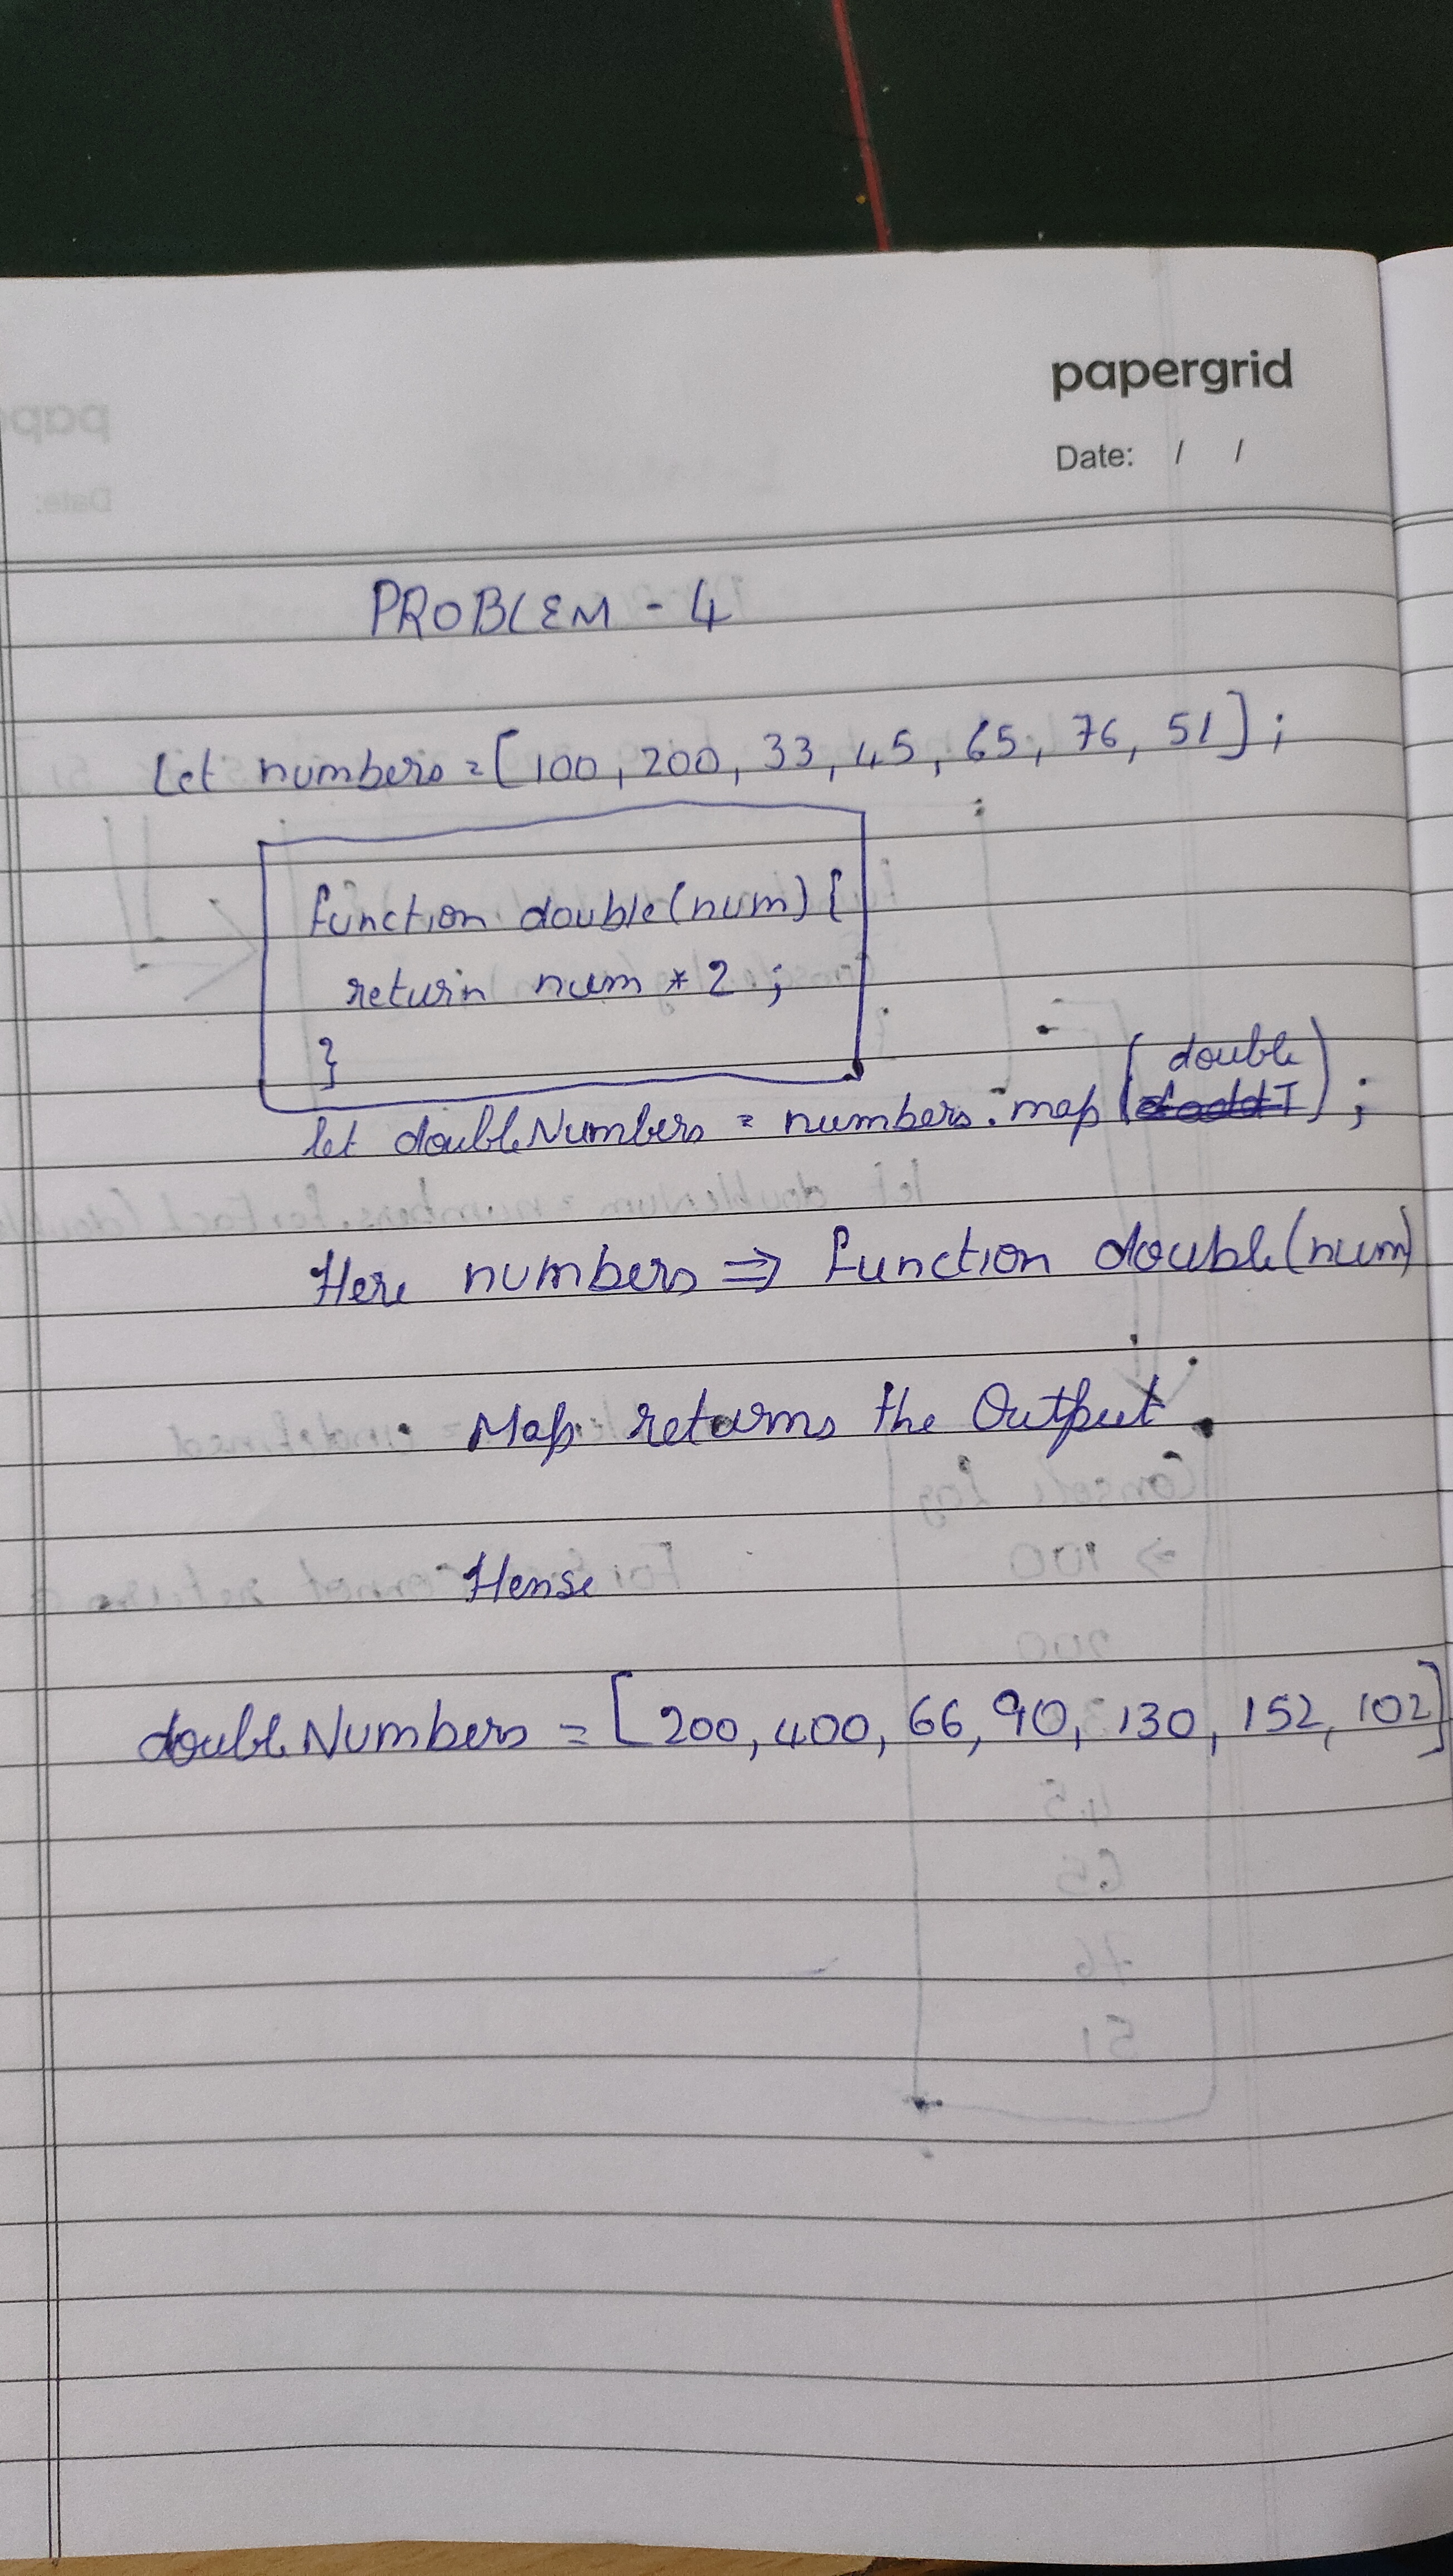 papergrid
Date: / /
PROBLEM - 4
Let numbers = [100, 200, 33, 45, 65, 76, 51];
function double(num) {
return num * 2 ;
}
let doubleNumbers = numbers.map(double);
Here numbers ⇒ function double(num)
Map returns the Output.
Hense
doubleNumbers = [200, 400, 66, 90, 130, 152, 102]